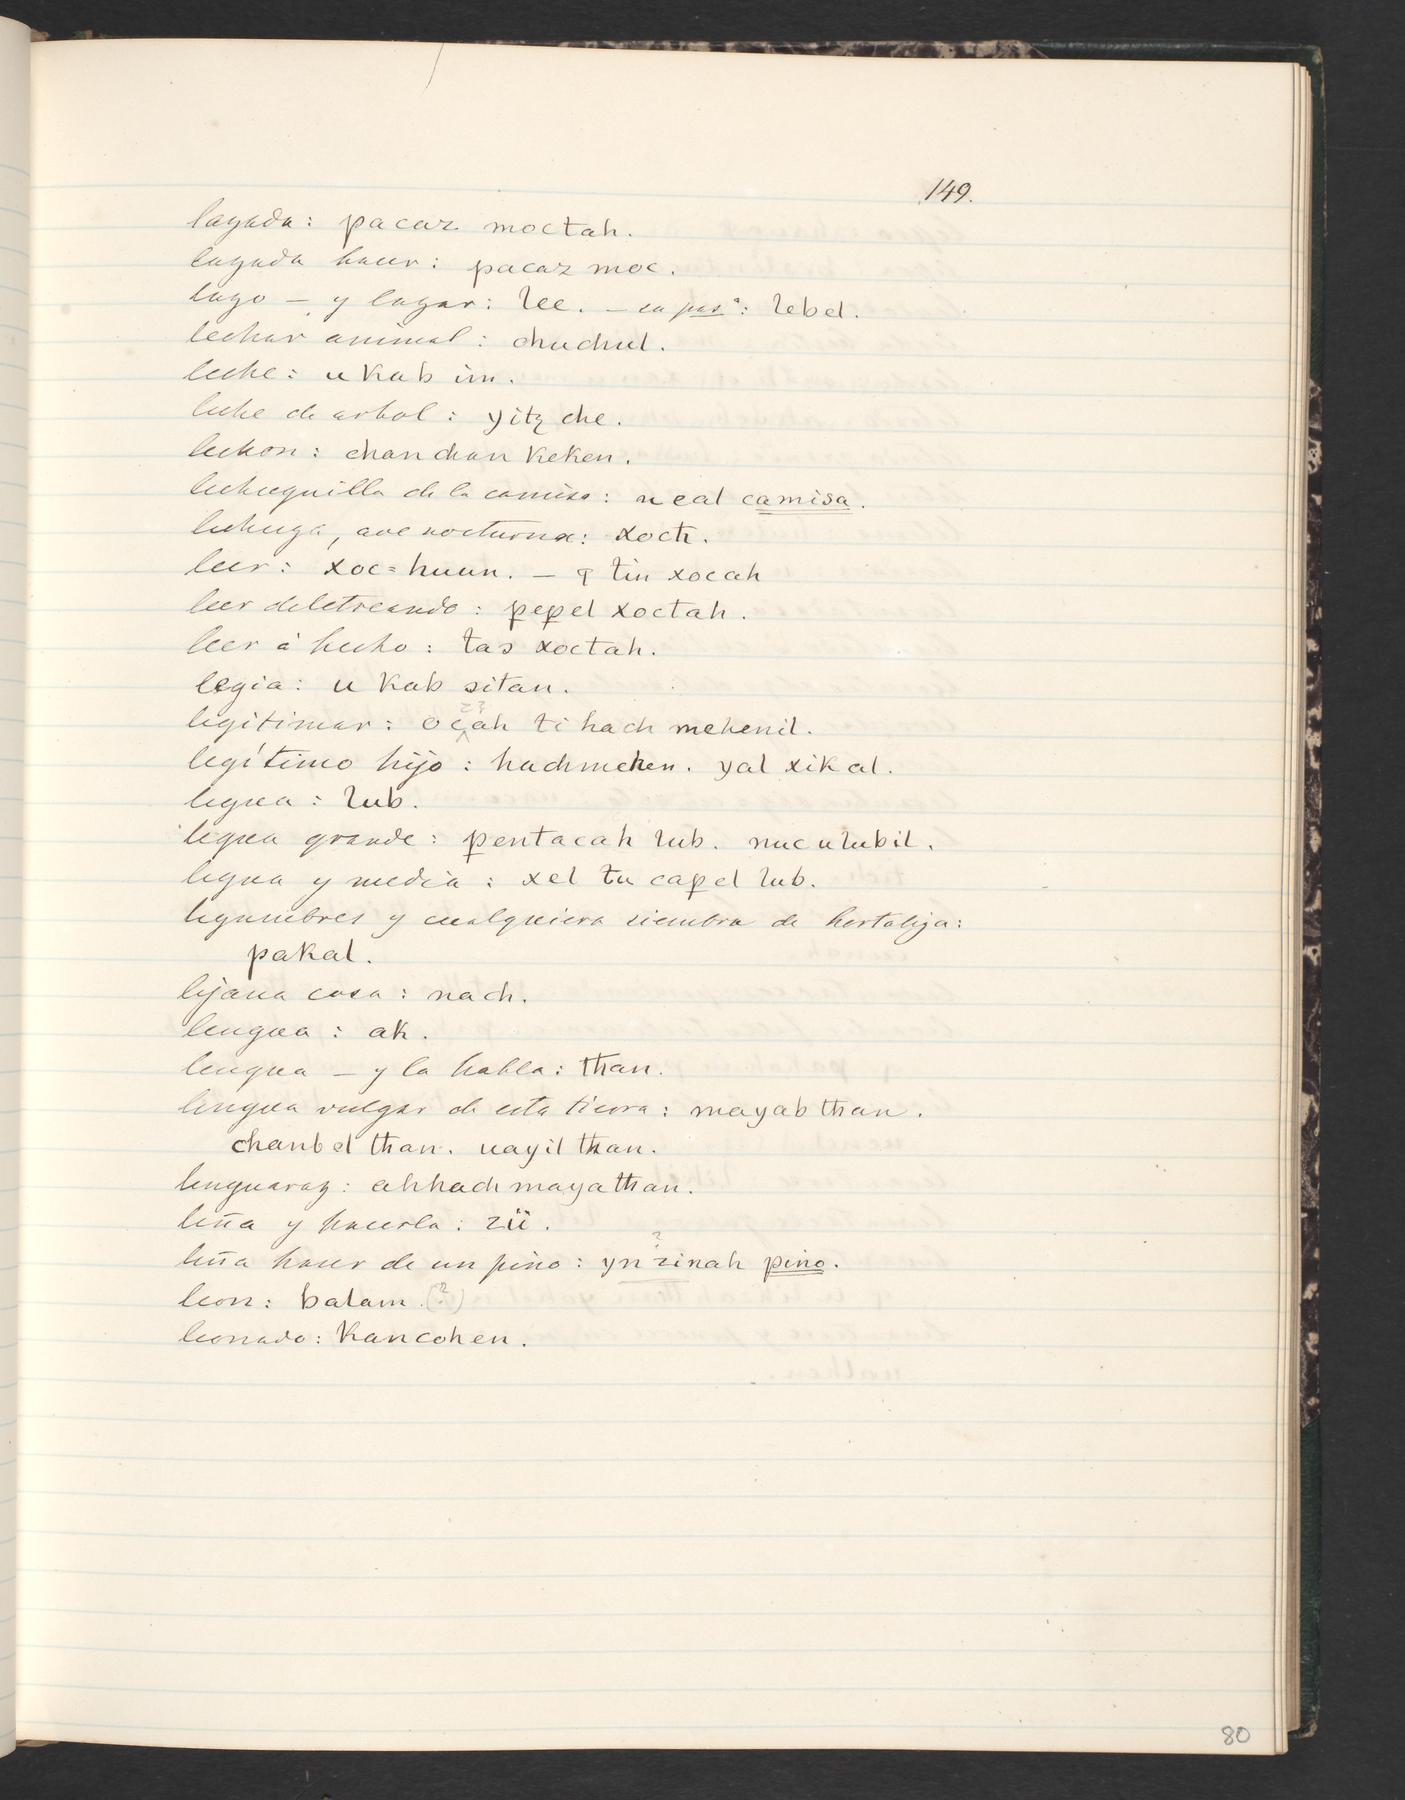 149.
lazada: pacaz moctah.
lazada hacer: pacaz moc.
lazo – y lazar: lee. – su pas.ᵃ: lebel.
lechar animal: chuchul.
leche: u kab im.
leche de arbol: yitz che.
lechon: chanchan keken.
lechuguilla de la camisa: u cal camisa.
lechuza, ave nocturna: xoch.
leer: xoc=huun. – ꝗ tin xocah
leer deletreando: ꝑeꝑel xoctah.
leer á hecho: tas xoctah.
legia: u kab sitan.
legitimar: ocçah ti hach mehenil.
legítimo hijo: hachmehen. yal xikal.
legua: lub.
legua grande: ꝑentacah lub. nuc u lubil.
legua y media: xel tu caꝑel lub.
legumbres y cualquiera siembra de hortaliza:
pakal.
lejana cosa: nach.
lengua: ak.
lengua – y la habla: than.
lengua vulgar de esta tierra: mayab than.
chanbel than. uayil than.
lenguaraz: ahhach mayathan.
leña y hacerla: zii.
leña hacer de un pino: yn zinah pino.
?
leon: balam (?)
leonado: kancohen.
80